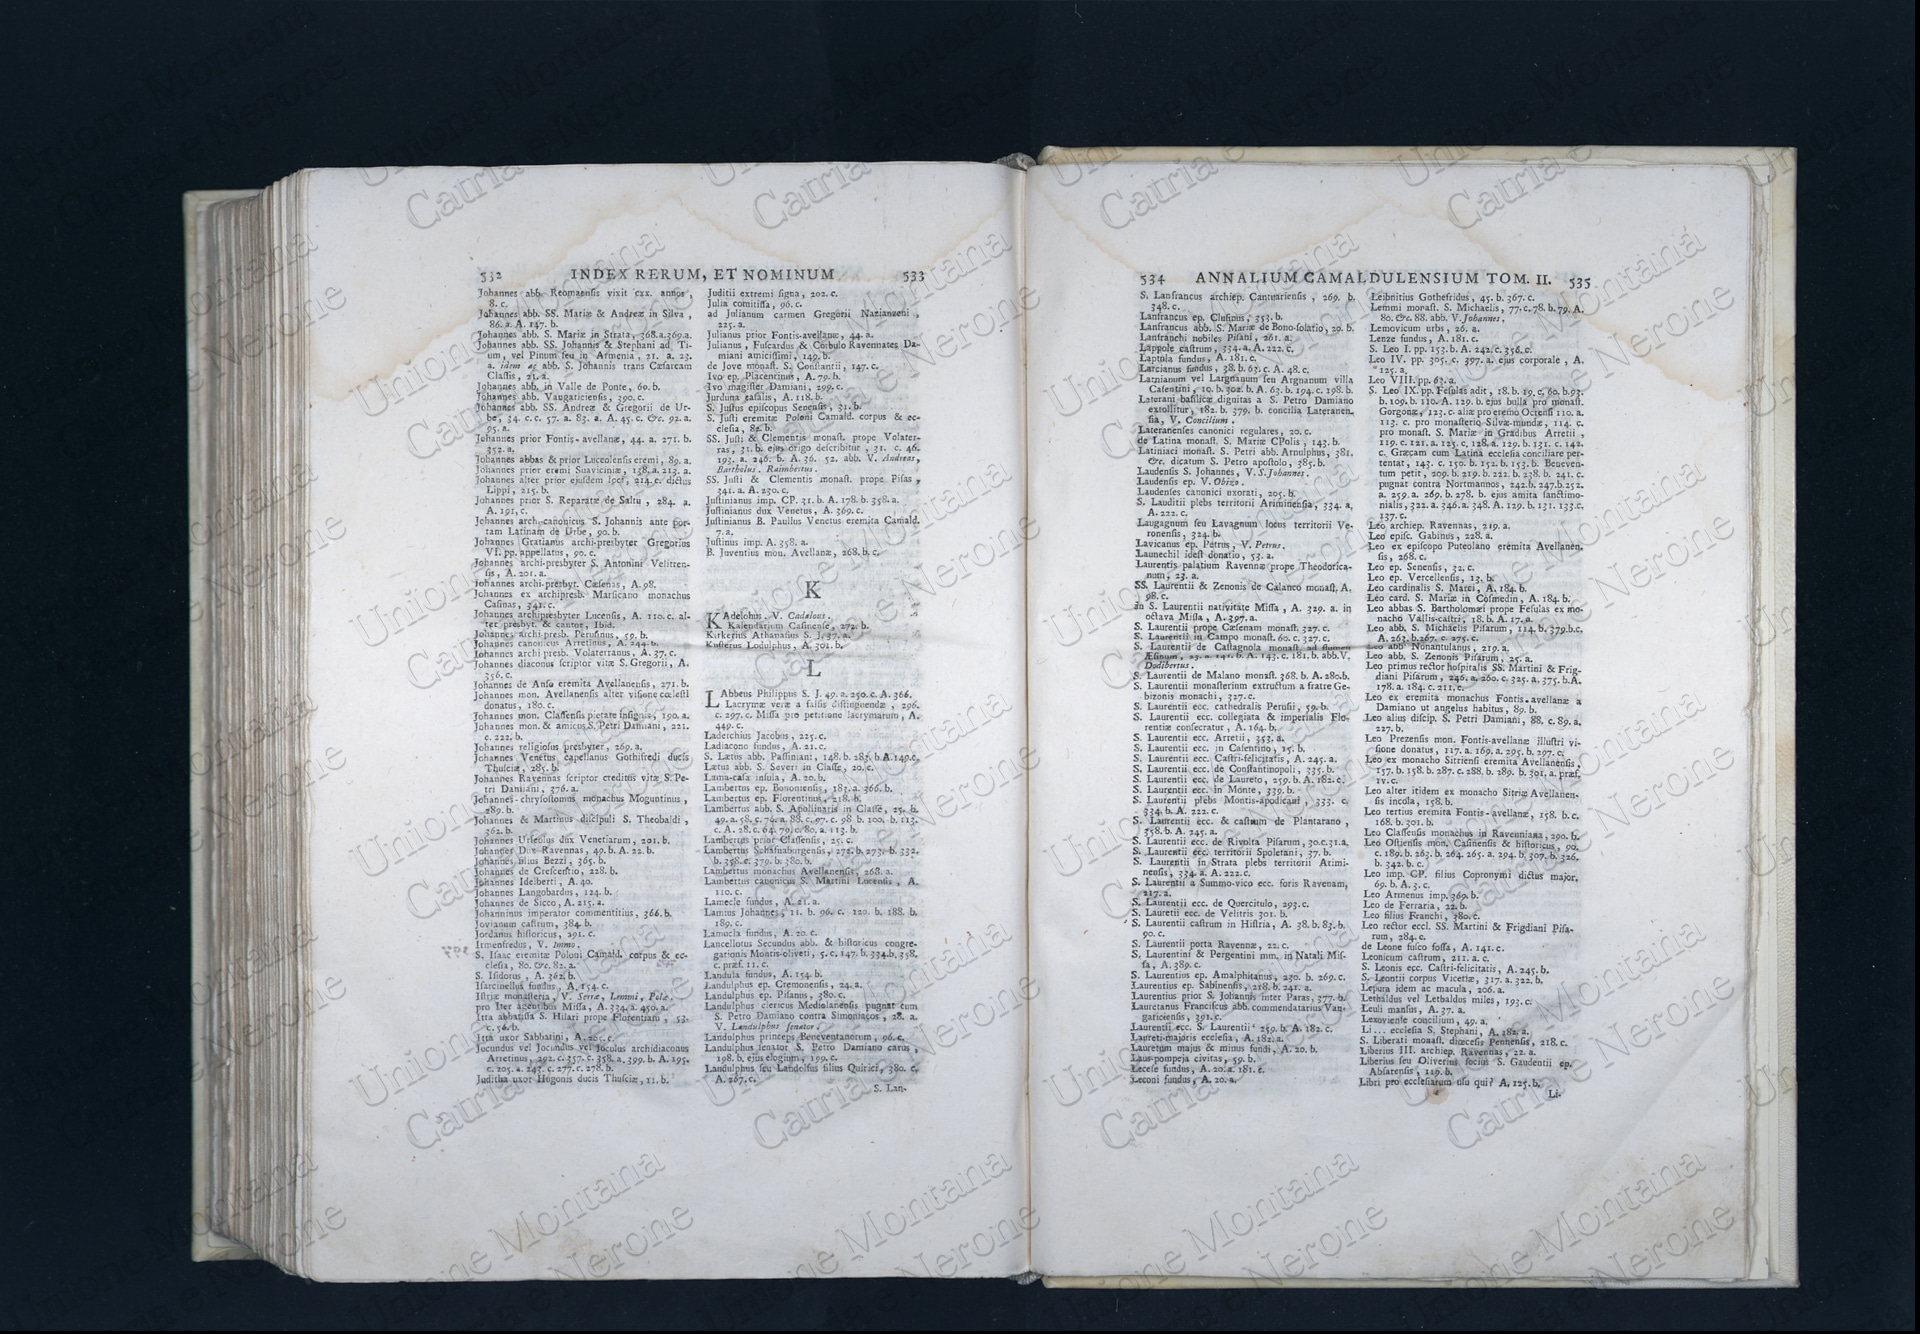 532 INDEX RERUM, ET NOMINUM 533
Johannes abb. Reomaensis vixit cxx. annos,
8. c.
Johannes abb. SS. Mariæ & Andreæ in Silva,
86. a. A. 147. b.
Johannes abb. S. Mariæ in Strata, 368.a.369.a.
Johannes abb. SS. Johannis & Stephani ad Ti-
um, vel Pinum seu in Armenia, 21. a. 23.
a. idem ac abb. S. Johannis trans Cæsarcam
Classis, 21. a.
Johannes abb. in Valle de Ponte, 60. b.
Johannes abb. Vangaticiensis, 390. c.
Johannes abb. SS. Andreæ & Gregorii de Ur-
be, 34. c. c. 57. a. 83. a. A. 45. c. &c. 92. a.
95. a.
Johannes prior Fontis-avellanæ, 44. a. 271. b.
352. a.
Johannes abbas & prior Luceolensis eremi, 89. a.
Johannes prior eremi Suaviciniæ, 138. a. 213. a.
Johannes alter prior ejusdem loci, 214. c. dictus
Lippi, 215. b.
Johannes prior S. Reparatæ de Saltu, 284. a.
A. 191. c.
Johannes arch. canonicus S. Johannis ante por-
tam Latinam de Urbe, 90. b.
Johannes Gratianus archi-presbyter Gregorius
VI. pp. appellatus, 90. c.
Johannes archi-presbyter S. Antonini Velitren-
sis, A. 201. a.
Johannes archi-presbyt. Cæsenas, A. 98.
Johannes ex archipresb. Marsicano monachus
Casinas, 341. c.
Johannes archipresbyter Lucensis, A. 110. c. al-
ter presbyt. & cantor, Ibid.
Johannes archi-presb. Perusinus, 59. b.
Johannes canonicus Arretinus, A. 244. b.
Johannes archi presb. Volaterranus, A. 37. c.
Johannes diaconus scriptor vitæ S. Gregorii, A.
356. c.
Johannes de Anso eremita Avellanensis, 271. b.
Johannes mon. Avellanensis alter visione cœlesti
donatus, 180. c.
Johannes mon. Classensis pietate insignis, 190. a.
Johannes mon. & amicus S. Petri Damiani, 221.
c. 222. b.
Johannes religiosus presbyter, 269. a.
Johannes Venetus capellanus Gothifredi ducis
Thusciæ, 285. b.
Johannes Ravennas scriptor creditus vitæ S. Pe-
tri Damiani, 376. a.
Johannes chrysostomus monachus Moguntinus,
289. b.
Johannes & Martinus discipuli S. Theobaldi,
362. b.
Johannes Urseolus dux Venetiarum, 201. b.
Johannes Dux Ravennas, 49. b. A. 22. b.
Johannes filius Bezzi, 365. b.
Johannes de Crescentio, 228. b.
Johannes Idelberti, A. 40.
Johannes Langobardus, 124. b.
Johannes de Sicco, A. 215. a.
Johanninus imperator commentitius, 366. b.
Jovianum castrum, 384. b.
Jordanus historicus, 291. c.
Irmenfredus, V. Immo.
S. Isaac eremitæ Poloni Camald. corpus & ec-
clesia, 80. &c. 82. a.
S. Isidotus, A. 362. b.
Isarcinellus fundus, A. 154. c.
Istriæ monasteria, V. Serræ, Lemmi, Polæ.
pro Iter agentibus Missa, A. 334. a. 450. a.
Itta abbatissa S. Hilari prope Florentiam, 53.
c. 56. b.
Itta uxor Sabbatini, A. 205. c.
Jocundus vel Jocundus vel Joculus archidiaconus
Arretinus, 292. c. 357. c. 358. a. 399. b. A. 195.
c. 205. a. 243. c. 277. c. 278. b.
Juditha uxor Hugonis ducis Thusciæ, 11. b.
Juditii extremi signa, 202. c.
Julia comitissa, 96. c.
ad Julianum carmen Gregorii Nazianzeni,
225. a.
Julianus prior Fontis-avellanæ, 44. a.
Julianus, Fuscardus & Corbulo Ravennates Da-
miani amicissimi, 149. b.
de Jove monast. S. Constantii, 147. c.
Ivo ep. Placentinus, A. 79. b.
Ivo magister Damiani, 299. c.
Jurduna casalis, A. 118. b.
S. Justus episcopus Senensis, 31. b.
S. Justi eremitæ Poloni Camald. corpus & ec-
clesia, 82. b.
SS. Justi & Clementis monast. prope Volater-
ras, 31. b. ejus origo describitur, 31. c. 46.
193. a. 246. b. A. 36. 52. abb. V. Andreas,
Bartholus. Raimbertus.
SS. Justi & Clementis monast. prope Pisas,
341. a. A. 230. c.
Justinianus imp. CP. 31. b. A. 178. b. 358. a.
Justinianus dux Venetus, A. 369. c.
Justinianus B. Paullus Venetus eremita Camald.
7. a.
Justinus imp. A. 358. a.
B. Juventius mon. Avellanæ, 268. b. c.
K
KAdelohus. V. Cadalous.
Kalendarium Casinense, 272. b.
Kirkerius Athanasius S. J. 37. a.
Kusterus Lodulphus, A. 301. b.
L
LAbbeus Philippus S. J. 49. a. 250. c. A. 366.
Lacrymæ veræ a falsis distinguendæ, 296.
c. 297. c. Missa pro petitione lacrymarum, A.
449. c.
Laderchius Jacobus, 225. c.
Ladiacono fundus, A. 21. c.
S. Lætus abb. Passiniani, 148. b. 285. b. A. 149. c.
Lætus abb. S. Severi in Classe, 20. c.
Lama-casa insula, A. 20. b.
Lambertus ep. Bononiensis, 183. a. 366. b.
Lambertus ep. Florentinus, 218. b.
Lambertus abb. S. Apollinaris in Classe, 25. b.
49. a. 58. c. 76. a. 88. c. 97. c. 98. b. 100. b. 113.
c. A. 28. c. 64. 79. c. 80. a. 113. b.
Lambertus prior Classensis, 25. c.
Lambertus Schafnaburgensis, 272. b. 273. b. 332.
b. 358. c. 379. b. 380. b.
Lambertus monachus Avellanensis, 268. a.
Lambertus canonicus S. Martini Lucensis, A.
110. c.
Lamecle fundus, A. 21. a.
Lamius Johannes, 11. b. 96. c. 120. b. 188. b.
189. c.
Lamucla fundus, A. 20. c.
Lancellotus Secundus abb. & historicus congre-
gationis Montis-oliveti, 5. c. 147. b. 334. b. 358.
c. præf. 11. c.
Landula fundus, A. 154. b.
Landulphus ep. Cremonensis, 24. a.
Landulphus ep. Pisanus, 380. c.
Landulphus clericus Mediolanensis pugnat cum
S. Petro Damiano contra Simoniacos, 28. a.
V. Landulphus senator.
Landulphus princeps Beneventanorum, 96. c.
Landulphus senator S. Petro Damiano carus,
198. b. ejus elogium, 199. c.
Landulphus seu Landolfus filius Quirici, 380. c.
A. 267. c.
S. Lan-
534 ANNALIUM CAMALDULENSIUM TOM. II. 535
S. Lanfrancus archiep. Cantuariensis, 269. b.
348. c.
Lanfrancus ep. Clusinus, 353. b.
Lanfrancus abb. S. Mariæ de Bono-solatio, 29. b.
Lanfranchi nobiles Pisani, 261. a.
Lappole castrum, 334. a. A. 222. c.
Laptula fundus, A. 181. c.
Larcianus fundus, 38. b. 63. c. A. 48. c.
Larnianum vel Largnanum seu Argnanum villa
Casentini, 10. b. 302. b. A. 63. b. 194. c. 198. b.
Laterani basilicæ dignitas a S. Petro Damiano
extollitur, 182. b. 379. b. concilia Lateranen-
sia, V. Concilium.
Lateranenses canonici regulares, 20. c.
de Latina monast. S. Mariæ CPolis, 143. b.
Latiniaci monast. S. Petri abb. Arnulphus, 381.
&c. dicatum S. Petro apostolo, 385. b.
Laudensis S. Johannes, V. S. Johannes.
Laudensis ep. V. Obizo.
Laudenses canonici uxorati, 205. b.
S. Lauditii plebs territorii Ariminensis, 334. a,
A. 222. c.
Laugagnum seu Lavagnum locus territorii Ve-
ronensis, 324. b.
Lavicanus ep. Petrus, V. Petrus.
Launechil idest donatio, 53. a.
Laurentis palatium Ravennæ prope Theodorica-
num, 23. a.
SS. Laurentii & Zenonis de Calanco monast. A.
98. c.
in S. Laurentii nativitate Missa, A. 329. a. in
octava Missa, A. 397. a.
S. Laurentii prope Cæsenam monast. 327. c.
S. Laurentii in Campo monast. 60. c. 327. c.
S. Laurentii de Castagnola monast. ad flumen
Æsinum, 23. a. 141. b. A. 143. c. 181. b. abb. V.
Dodibertus.
S. Laurentii de Malano monast. 368. b. A. 280. b.
S. Laurentii monasterium extructum a fratre Ge-
bizonis monachi, 327. c.
S. Laurentii ecc. cathedralis Perusii, 59. b.
S. Laurentii ecc. collegiata & imperialis Flo-
rentiæ consecratur, A. 164. b.
S. Laurentii ecc. Arretii, 353. a.
S. Laurentii ecc. in Casentino, 15. b.
S. Laurentii ecc. Castri-felicitatis, A. 245. a.
S. Laurentii ecc. de Constantinopoli, 335. b.
S. Laurentii ecc. de Laureto, 259. b. A. 182. c.
S. Laurentii ecc. in Monte, 339. b.
S. Laurentii plebs Montis-apodicani, 333. c.
334. b. A. 222. c.
S. Laurentii ecc. & castrum de Plantarano,
358. b. A. 245. a.
S. Laurentii ecc. de Rivolta Pisarum, 30. c. 31. a.
S. Laurentii ecc. territorii Spoletani, 37. b.
S. Laurentii in Strata plebs territorii Arimi-
nensis, 334. a. A. 222. c.
S. Laurentii a Summo-vico ecc. foris Ravenam,
217. a.
S. Laurentii ecc. de Quercitulo, 293. c.
S. Lauretii ecc. de Velitris 301. b.
S. Laurentii castrum in Histria, A. 38. b. 83. b.
90. c.
S. Laurentii porta Ravennæ, 22. c.
S. Laurentini & Pergentini mm. in Natali Mis-
sa, A. 389. c.
S. Laurentius ep. Amalphitanus, 230. b. 269. c.
Laurentius ep. Sabinensis, 218. b. 241. a.
Laurentius prior S. Johannis inter Paras, 377. b.
Lauretanus Franciscus abb. commendatarius Van-
gaticiensis, 391. c.
Laurentii ecc. S. Laurentii 259. b. A. 182. c.
Laureti-majoris ecclesia, A. 182. a.
Lauretum majus & minus fundi, A. 20. b.
Laus-pompeja civitas, 59. b.
Lecese fundus, A. 20. a. 181. c.
Leconi fundus, A. 20. a.
Leibnitius Gothefridus, 45. b. 367. c.
Lemmi monast. S. Michaelis, 77. c. 78. b. 79. A.
80. &c. 88. abb. V. Johannes.
Lemovicum urbs, 26. a.
Lenze fundus, A. 181. c.
S. Leo I. pp. 153. b. A. 242. c. 356. c.
Leo IV. pp. 305. c. 397. a. ejus corporale, A.
125. a.
Leo VIII. pp. 63. a.
S. Leo IX. pp. Fesulas adit, 18. b. 19. c. 60. b. 93.
b. 109. b. 110. A. 129. b. ejus bulla pro monast.
Gorgonæ, 123. c. aliæ pro eremo Ocrensi 110. a.
113. c. pro monasterio Silvæ-mundæ, 114. c.
pro monast. S. Mariæ in Gradibus Arretii,
119. c. 121. a. 125. c. 128. a. 129. b. 131. c. 142.
c. Græcam cum Latina ecclesia conciliare per-
tentat, 143. c. 150. b. 152. b. 153. b. Beneven-
tum petit, 209. b. 219. b. 222. b. 238. b. 241. c.
pugnat contra Nortmannos, 242. b. 247. b. 252.
a. 259. a. 269. b. 278. b. ejus amita sanctimo-
nialis, 322. a. 346. a. 348. A. 129. b. 131. 133. c.
137. c.
Leo archiep. Ravennas, 219. a.
Leo episc. Gabinus, 228. a.
Leo ex episcopo Puteolano eremita Avellanen-
sis, 268. c.
Leo ep. Senensis, 32. c.
Leo ep. Vercellensis, 13. b.
Leo cardinalis S. Marci, A. 184. b.
Leo card. S. Mariæ in Cosmedin, A. 184. b.
Leo abbas S. Bartholomæi prope Fesulas ex mo-
nacho Vallis-castri, 18. b. A. 17. a.
Leo abb. S. Michaelis Pisarum, 114. b. 379. b. c.
A. 263. b. 267. c. 275. c.
Leo abb. Nonantulanus, 219. a.
Leo abb. S. Zenonis Pisarum, 25. a.
Leo primus rector hospitalis SS. Martini & Frig-
diani Pisarum, 246. a. 260. c. 325. a. 375. b. A.
178. a. 184. c. 211. c.
Leo ex eremita monachus Fontis-avellanæ a
Damiano ut angelus habitus, 89. b.
Leo alius discip. S. Petri Damiani, 88. c. 89. a.
227. b.
Leo Prezensis mon. Fontis-avellanæ illustri vi-
sione donatus, 117. a. 169. a. 295. b. 297. c.
Leo ex monacho Sitriensi eremita Avellanensis,
157. b. 158. b. 287. c. 288. b. 289. b. 301. a. præf.
iv. c.
Leo alter itidem ex monacho Sitriæ Avellanen-
sis incola, 158. b.
Leo tertius eremita Fontis-avellanæ, 158. b. c.
168. b. 301. b.
Leo Classensis monachus in Ravenniana, 290. b.
Leo Ostiensis mon. Casinensis & historicus, 90.
c. 189. b. 263. b. 264. 265. a. 294. b. 307. b. 326.
b. 342. b. c.
Leo imp. CP. filius Copronymi dictus major,
69. b. A. 3. c.
Leo Armenus imp. 369. b.
Leo de Ferraria, 22. b.
Leo filius Franchi, 380. c.
Leo rector eccl. SS. Martini & Frigdiani Pisa-
rum, 284. c.
de Leone fusco fossa, A. 141. c.
Leonicum castrum, 211. a. c.
S. Leonis ecc. Castri-felicitatis, A. 245. b.
S. Leontii corpus Vicetiæ, 317. a. 322. b.
Lepura idem ac macula, 206. a.
Lethaldus vel Letbaldus miles, 193. c.
Leuli mansus, A. 37. a.
Lexoviense concilium, 49. a.
Li... ecclesia S. Stephani, A. 182. a.
S. Liberati monast. diœcesis Pennensis, 218. c.
Liberius III. archiep. Ravennas, 22. a.
Liberius seu Oliverius socius S. Gaudentii ep.
Absarensis, 119. b.
Libri pro ecclesiarum usu qui? A. 125. b.
Li-
Unione Montana
Catria e Nerone